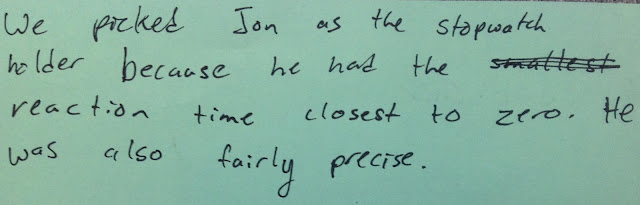 We picked Jon as the stopwatch
holder because he had the smallest
reaction time closest to zero. He
was also fairly precise.